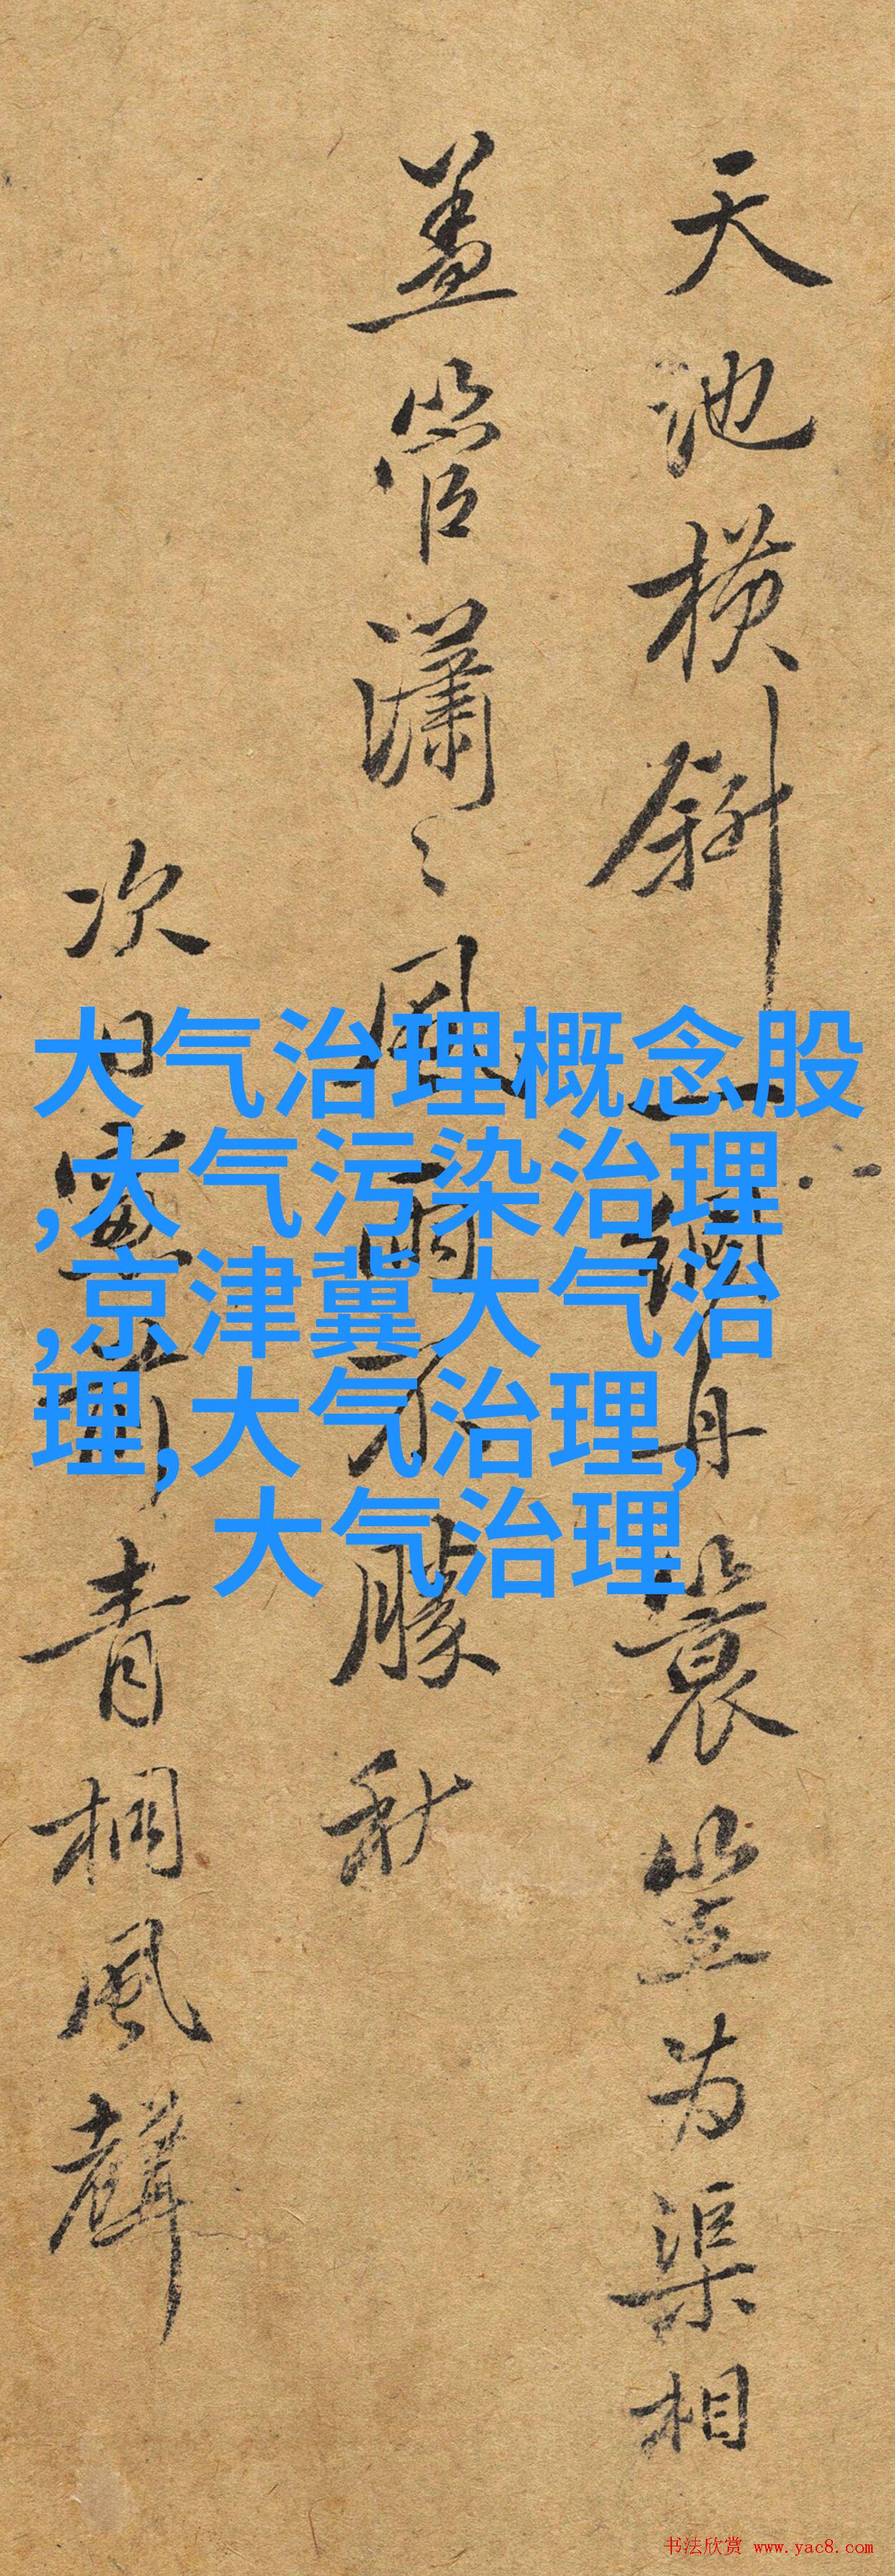 天池横斜一
蓑笠为渠相
盖管潇〻風雨不朦秋
次日窗前青桐風聲
大气治理概念股
,大气污染治理
,京津冀大气治
理,大气治理,
大气治理
书法欣赏 www.yac8.com